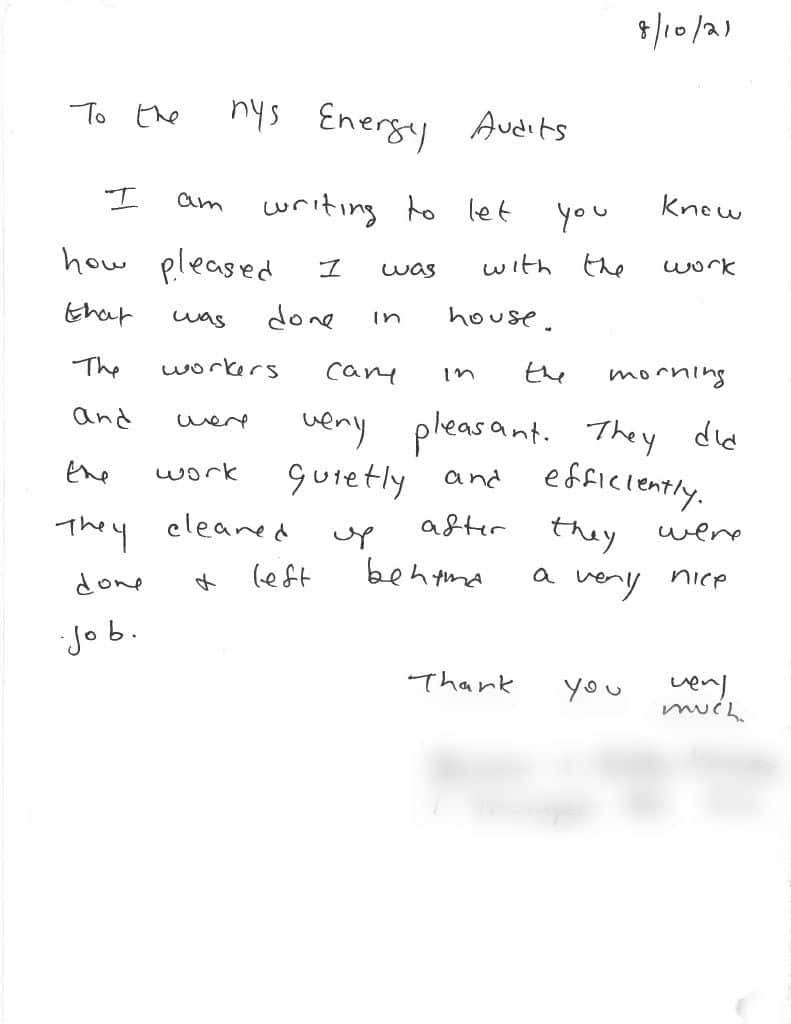 8/10/21
To the nys Energy Audits
I am writing to let you know
how pleased I was with the work
that was done in house.
The workers came in the morning
and were very pleasant. They did
the work quietly and efficiently.
They cleaned up after they were
done & left behind a very nice
job.
Thank you very
much.